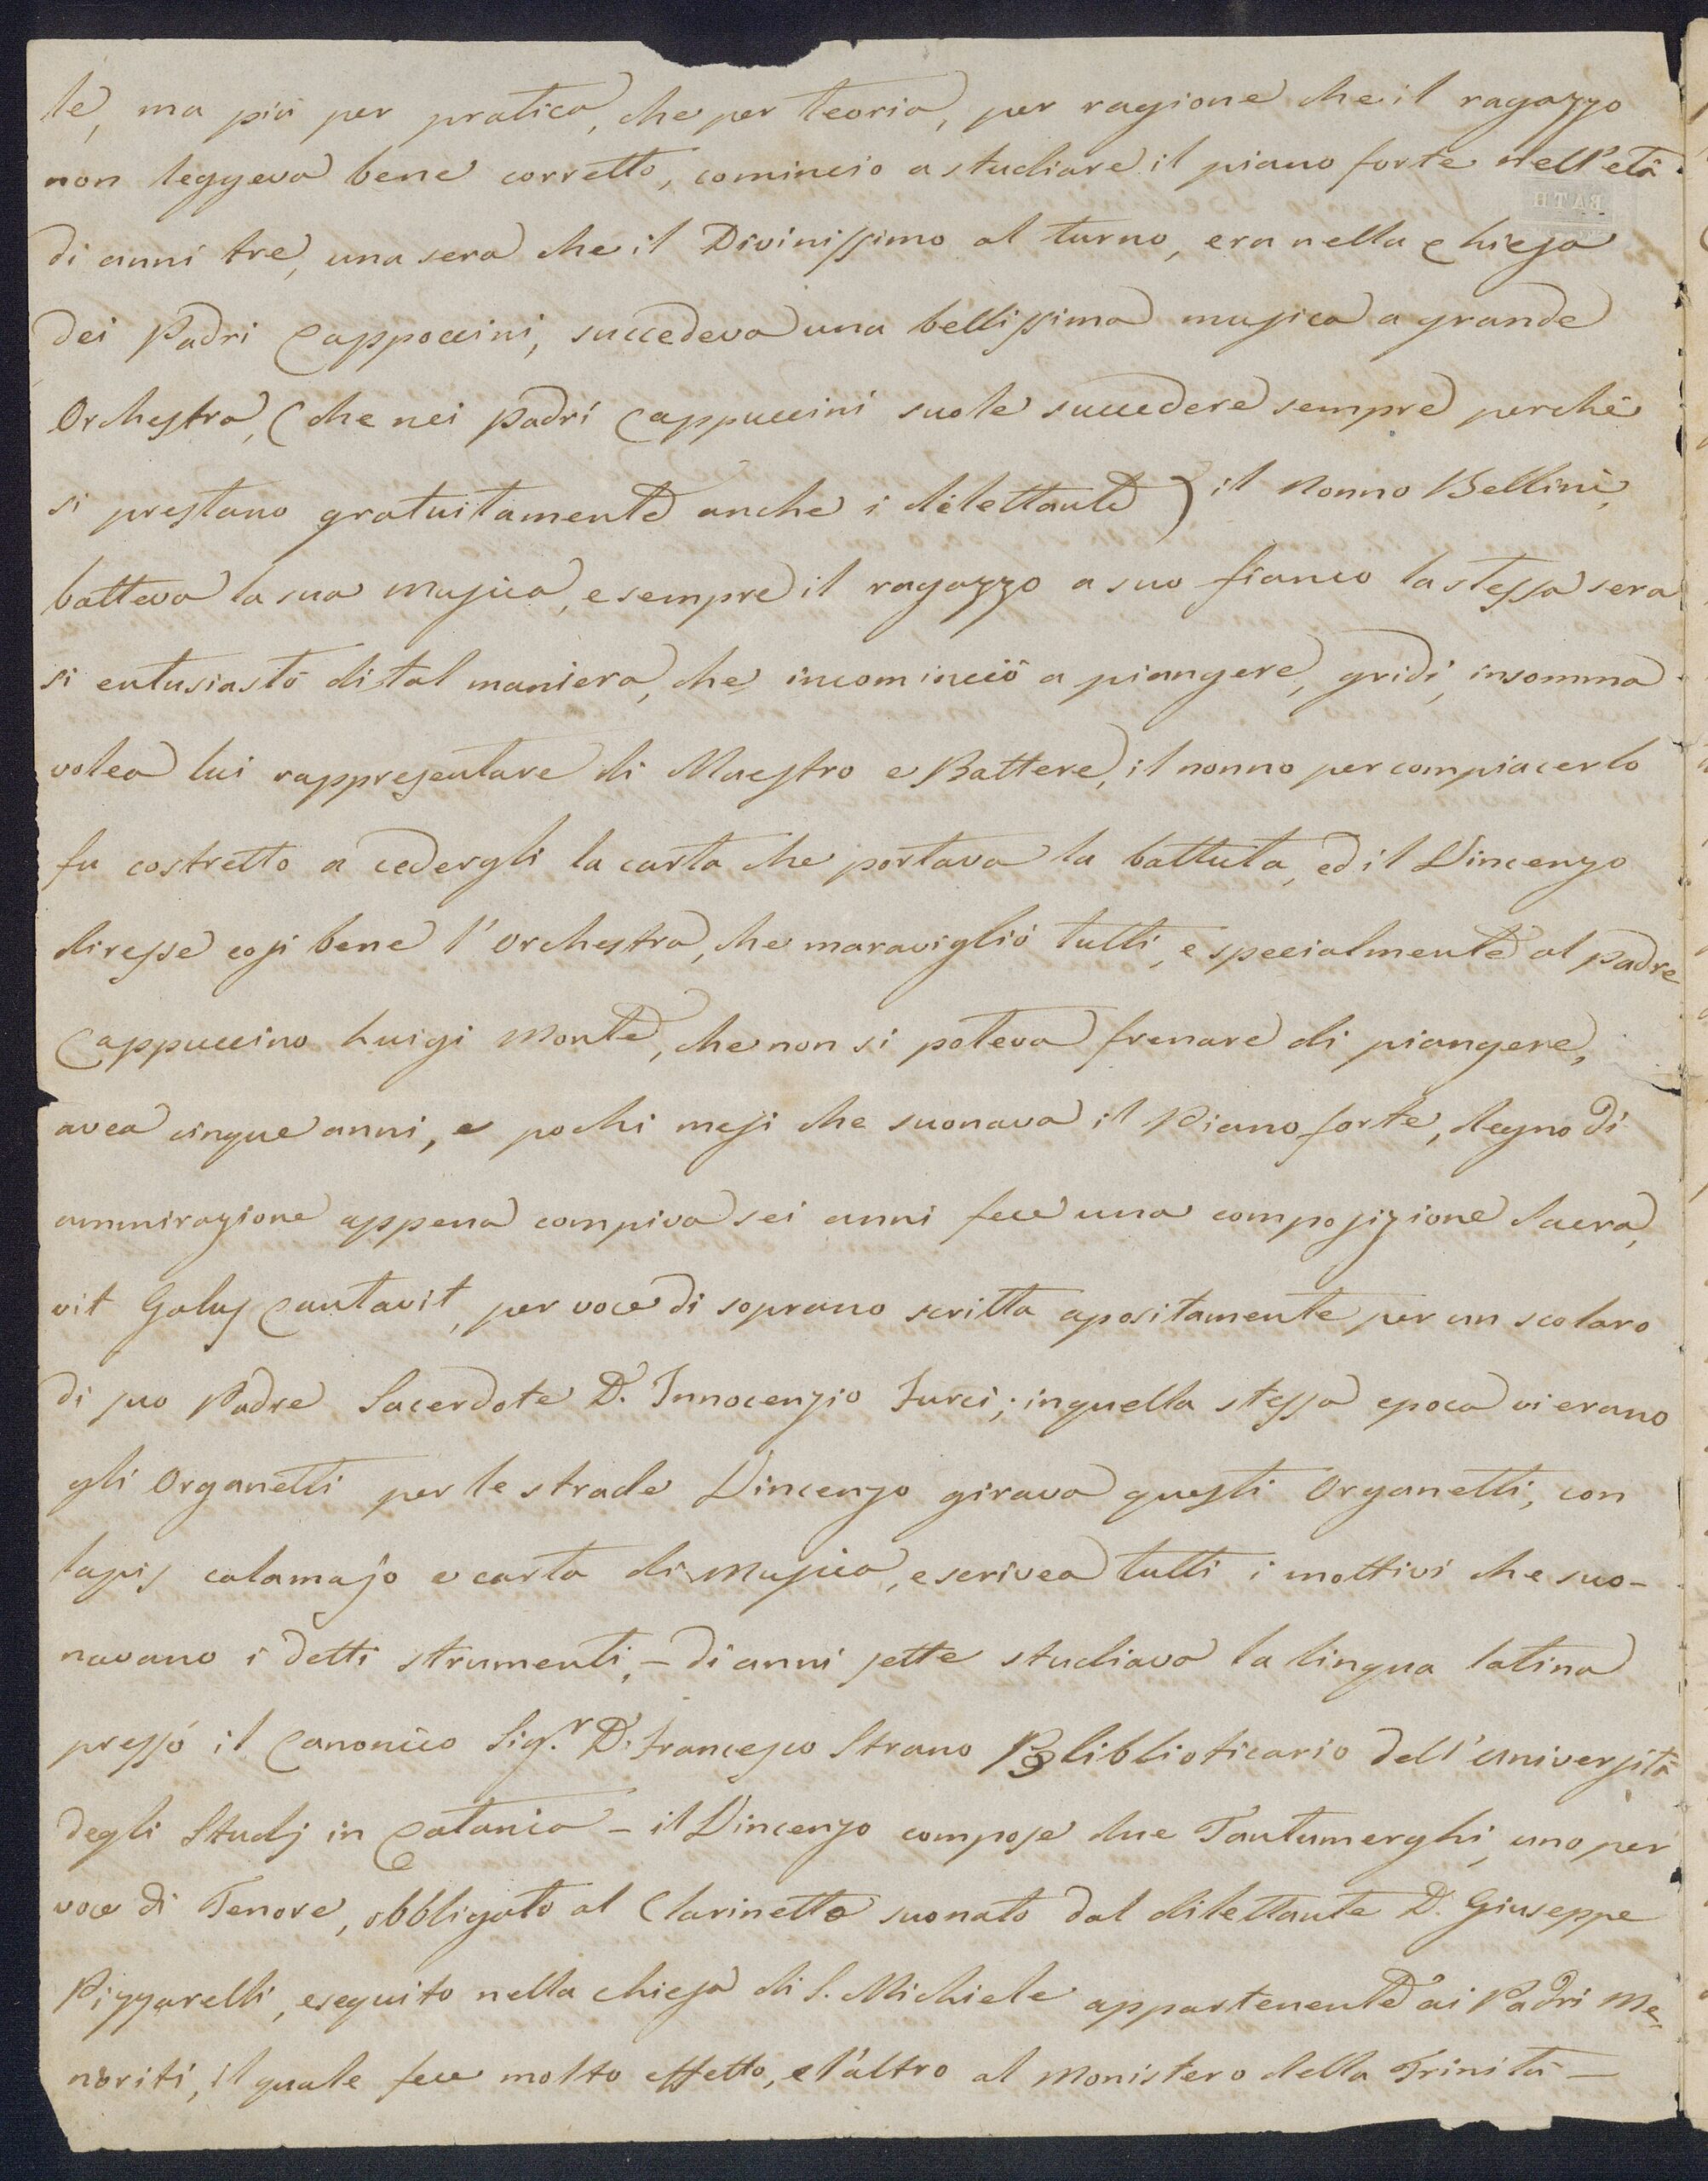 le, ma più per pratica, che per teoria, per ragione che il ragazzo
non leggeva bene corretto, comincio a studiare il piano forte nell'età
di anni tre, una sera che il Divinissimo al turno, era nella Chiesa
dei Padri Cappoccini, succedeva una bellissima musica a grande
Orchestra, (che nei Padri Cappuccini suole succedere sempre perchè
si prestano gratuitamente anche i dilettante) il Nonno Bellini,
batteva la sua Musica, e sempre il ragazzo a suo fianco la stessa sera
si entusiastò di tal maniera, che incominciò a piangere, gridi, insomma
volea lui rappresentare di Maestro e Battere, il nonno per compiacerlo
fu costretto a cedergli la carta che portava la battuta, ed il Vincenzo
diresse così bene l'Orchestra, che maravigliò tutti, e specialmente al Padre
Cappuccino Luigi Monte, che non si poteva frenare di piangere,
avea cinque anni, e pochi mesi che suonava il Piano forte, degno di
ammirazione appena compiva sei anni fece una composizione Sacra,
vit Galus Cantavit, per voce di soprano scritta apositamente per un scolaro
di suo Padre Sacerdote D. Innocenzio Furci; in quella stessa epoca vi erano
gli Organetti per le strade Vincenzo girava questi Organetti, con
lapis calamajo e carta di Musica, e scrivea tutti i mottivi che suo-
navano i detti strumenti, - di anni sette studiava la lingua latina
presso il Canonico Sig.r D. Francesco Strano Biblioticario dell'Università
degli Studj in Catania - il Vincenzo compose due Tantumerghi, uno per
voce di Tenore, obbligato al Clarinetto suonato dal dilettante D. Giuseppe
Pizzarelli, eseguito nella Chiesa di S. Michiele appartenente ai Padri Me-
noriti, il quale fece molto effetto, e l'altro al Monistero della Trinità -